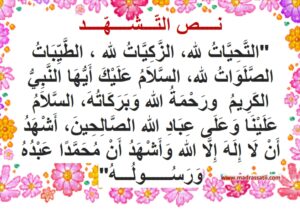 نـص التَّـشَـــهُّــد
"التَّحِيَّاتُ لله، الزَّكِيَّاتُ لله ، الطَّيِّبَاتُ
الصَّلَوَاتُ لله، السَّلاَمُ عَلَيْكَ أَيُّهَا النَّبِيُّ
الكَرِيمُ ورَحْمَةُ الله وَبَرَكَاتُهُ، السَّلاَمُ
عَلَيْنَا وَعَلَى عِبَادِ الله الصَّالِحِينَ، أَشْهَدُ
أَنْ لاَ إِلَهَ إِلاَّ الله وَأَشْهَدُ أَنَّ مُحَمَّدًا عَبْدُهُ
وَرَســـــُولُـــهُ"
www.madrassatii.com